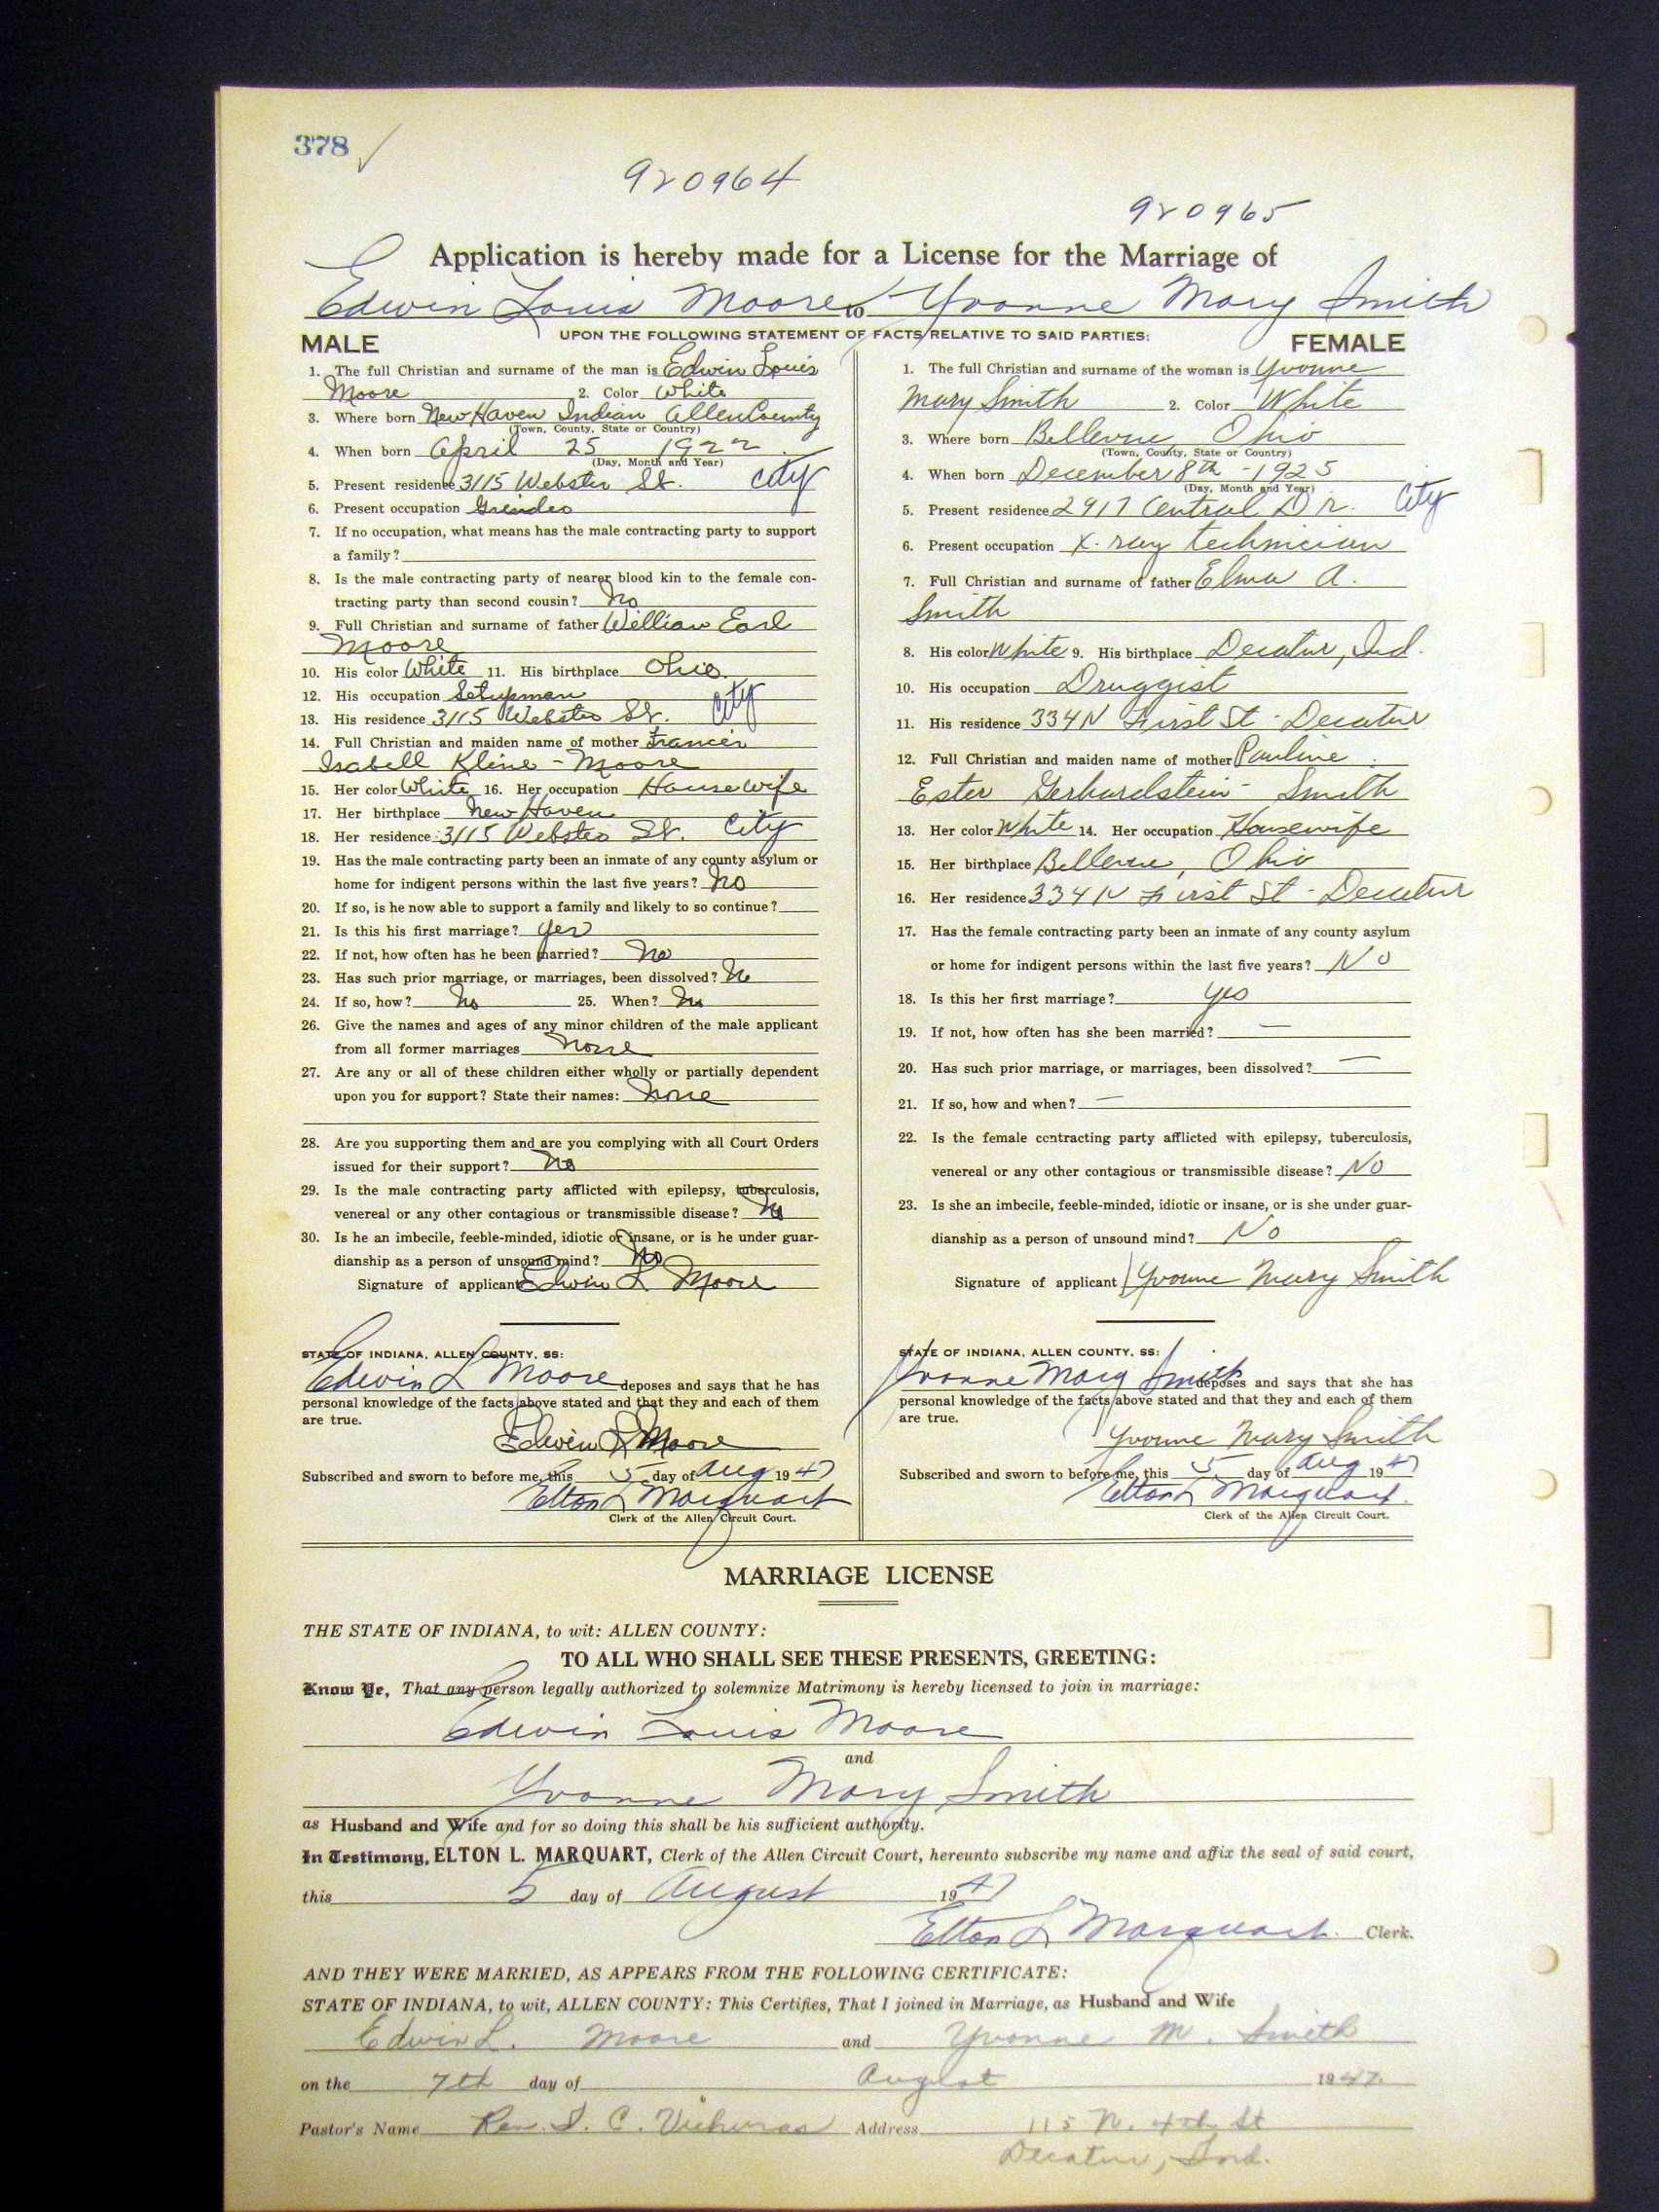 378 ✓
920964
920965
Application is hereby made for a License for the Marriage of
Edwin Louis Moore to Yvonne Mary Smith
UPON THE FOLLOWING STATEMENT OF FACTS RELATIVE TO SAID PARTIES:
MALE
1. The full Christian and surname of the man is Edwin Louis
Moore 2. Color White
3. Where born New Haven Indian Allen County
(Town, County, State or Country)
4. When born April 25 1922
(Day, Month and Year)
5. Present residence 3115 Webster St. City
6. Present occupation Grinder
7. If no occupation, what means has the male contracting party to support
a family?
8. Is the male contracting party of nearer blood kin to the female con-
tracting party than second cousin? No
9. Full Christian and surname of father William Earl
Moore
10. His color White 11. His birthplace Ohio
12. His occupation Setupman
13. His residence 3115 Webster St. City
14. Full Christian and maiden name of mother Francis
Isabell Kline - Moore
15. Her color White 16. Her occupation Housewife
17. Her birthplace New Haven
18. Her residence 3115 Webster St. City
19. Has the male contracting party been an inmate of any county asylum or
home for indigent persons within the last five years? No
20. If so, is he now able to support a family and likely to so continue?
21. Is this his first marriage? Yes
22. If not, how often has he been married? No
23. Has such prior marriage, or marriages, been dissolved? No
24. If so, how? No 25. When? No
26. Give the names and ages of any minor children of the male applicant
from all former marriages None
27. Are any or all of these children either wholly or partially dependent
upon you for support? State their names: None
28. Are you supporting them and are you complying with all Court Orders
issued for their support? No
29. Is the male contracting party afflicted with epilepsy, tuberculosis,
venereal or any other contagious or transmissible disease? No
30. Is he an imbecile, feeble-minded, idiotic or insane, or is he under guar-
dianship as a person of unsound mind? No
Signature of applicant Edwin L Moore
STATE OF INDIANA, ALLEN COUNTY, SS:
Edwin L Moore deposes and says that he has
personal knowledge of the facts above stated and that they and each of them
are true.
Edwin L Moore
Subscribed and sworn to before me, this 5 day of Aug 1947
Elton L Marquart
Clerk of the Allen Circuit Court.
FEMALE
1. The full Christian and surname of the woman is Yvonne
Mary Smith 2. Color White
3. Where born Bellevue, Ohio
(Town, County, State or Country)
4. When born December 8th - 1925
(Day, Month and Year)
5. Present residence 2917 Central Dr. City
6. Present occupation X-ray technician
7. Full Christian and surname of father A.
Smith
8. His color White 9. His birthplace Decatur, Ind.
10. His occupation Druggist
11. His residence 334 N First St - Decatur
12. Full Christian and maiden name of mother Pauline
Ester Gerhardstein - Smith
13. Her color White 14. Her occupation Housewife
15. Her birthplace Bellevue, Ohio
16. Her residence 334 N First St - Decatur
17. Has the female contracting party been an inmate of any county asylum
or home for indigent persons within the last five years? No
18. Is this her first marriage? yes
19. If not, how often has she been married? —
20. Has such prior marriage, or marriages, been dissolved? —
21. If so, how and when? —
22. Is the female contracting party afflicted with epilepsy, tuberculosis,
venereal or any other contagious or transmissible disease? No
23. Is she an imbecile, feeble-minded, idiotic or insane, or is she under guar-
dianship as a person of unsound mind? No
Signature of applicant Yvonne Mary Smith
STATE OF INDIANA, ALLEN COUNTY, SS:
Yvonne Mary Smith deposes and says that she has
personal knowledge of the facts above stated and that they and each of them
are true.
Yvonne Mary Smith
Subscribed and sworn to before me, this 5 day of Aug 1947
Elton L Marquart
Clerk of the Allen Circuit Court.
MARRIAGE LICENSE
THE STATE OF INDIANA, to wit: ALLEN COUNTY:
TO ALL WHO SHALL SEE THESE PRESENTS, GREETING:
Know Ye, That any person legally authorized to solemnize Matrimony is hereby licensed to join in marriage:
Edwin Louis Moore
and
Yvonne Mary Smith
as Husband and Wife and for so doing this shall be his sufficient authority.
In Testimony, ELTON L. MARQUART, Clerk of the Allen Circuit Court, hereunto subscribe my name and affix the seal of said court,
this 5 day of August 1947
Elton L Marquart. Clerk.
AND THEY WERE MARRIED, AS APPEARS FROM THE FOLLOWING CERTIFICATE:
STATE OF INDIANA, to wit, ALLEN COUNTY: This Certifies, That I joined in Marriage, as Husband and Wife
Edwin L. Moore and Yvonne M. Smith
on the 7th day of August 1947.
Pastor's Name Rev. C. Address 115 N. 4th St
Decatur, Ind.